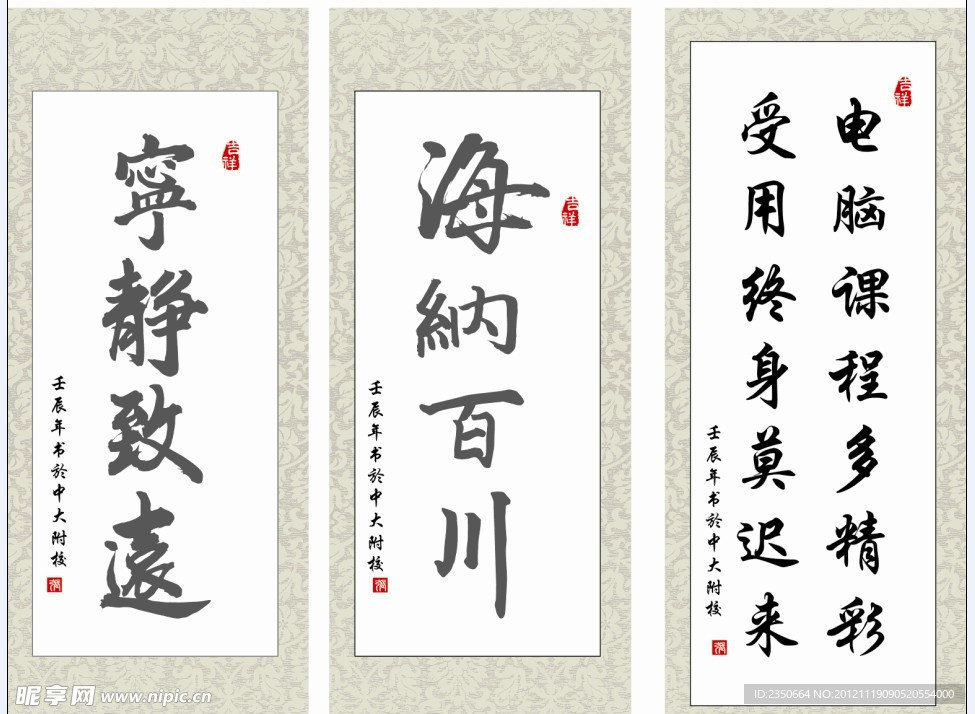 寧靜致遠
吉祥
壬辰年书於中大附校
海納百川
吉祥
壬辰年书於中大附校
吉祥
电脑课程多精彩
受用终身莫迟来
壬辰年书於中大附校
昵享网 www.nipic.cn
ID:2350664 NO:20121119090520554000